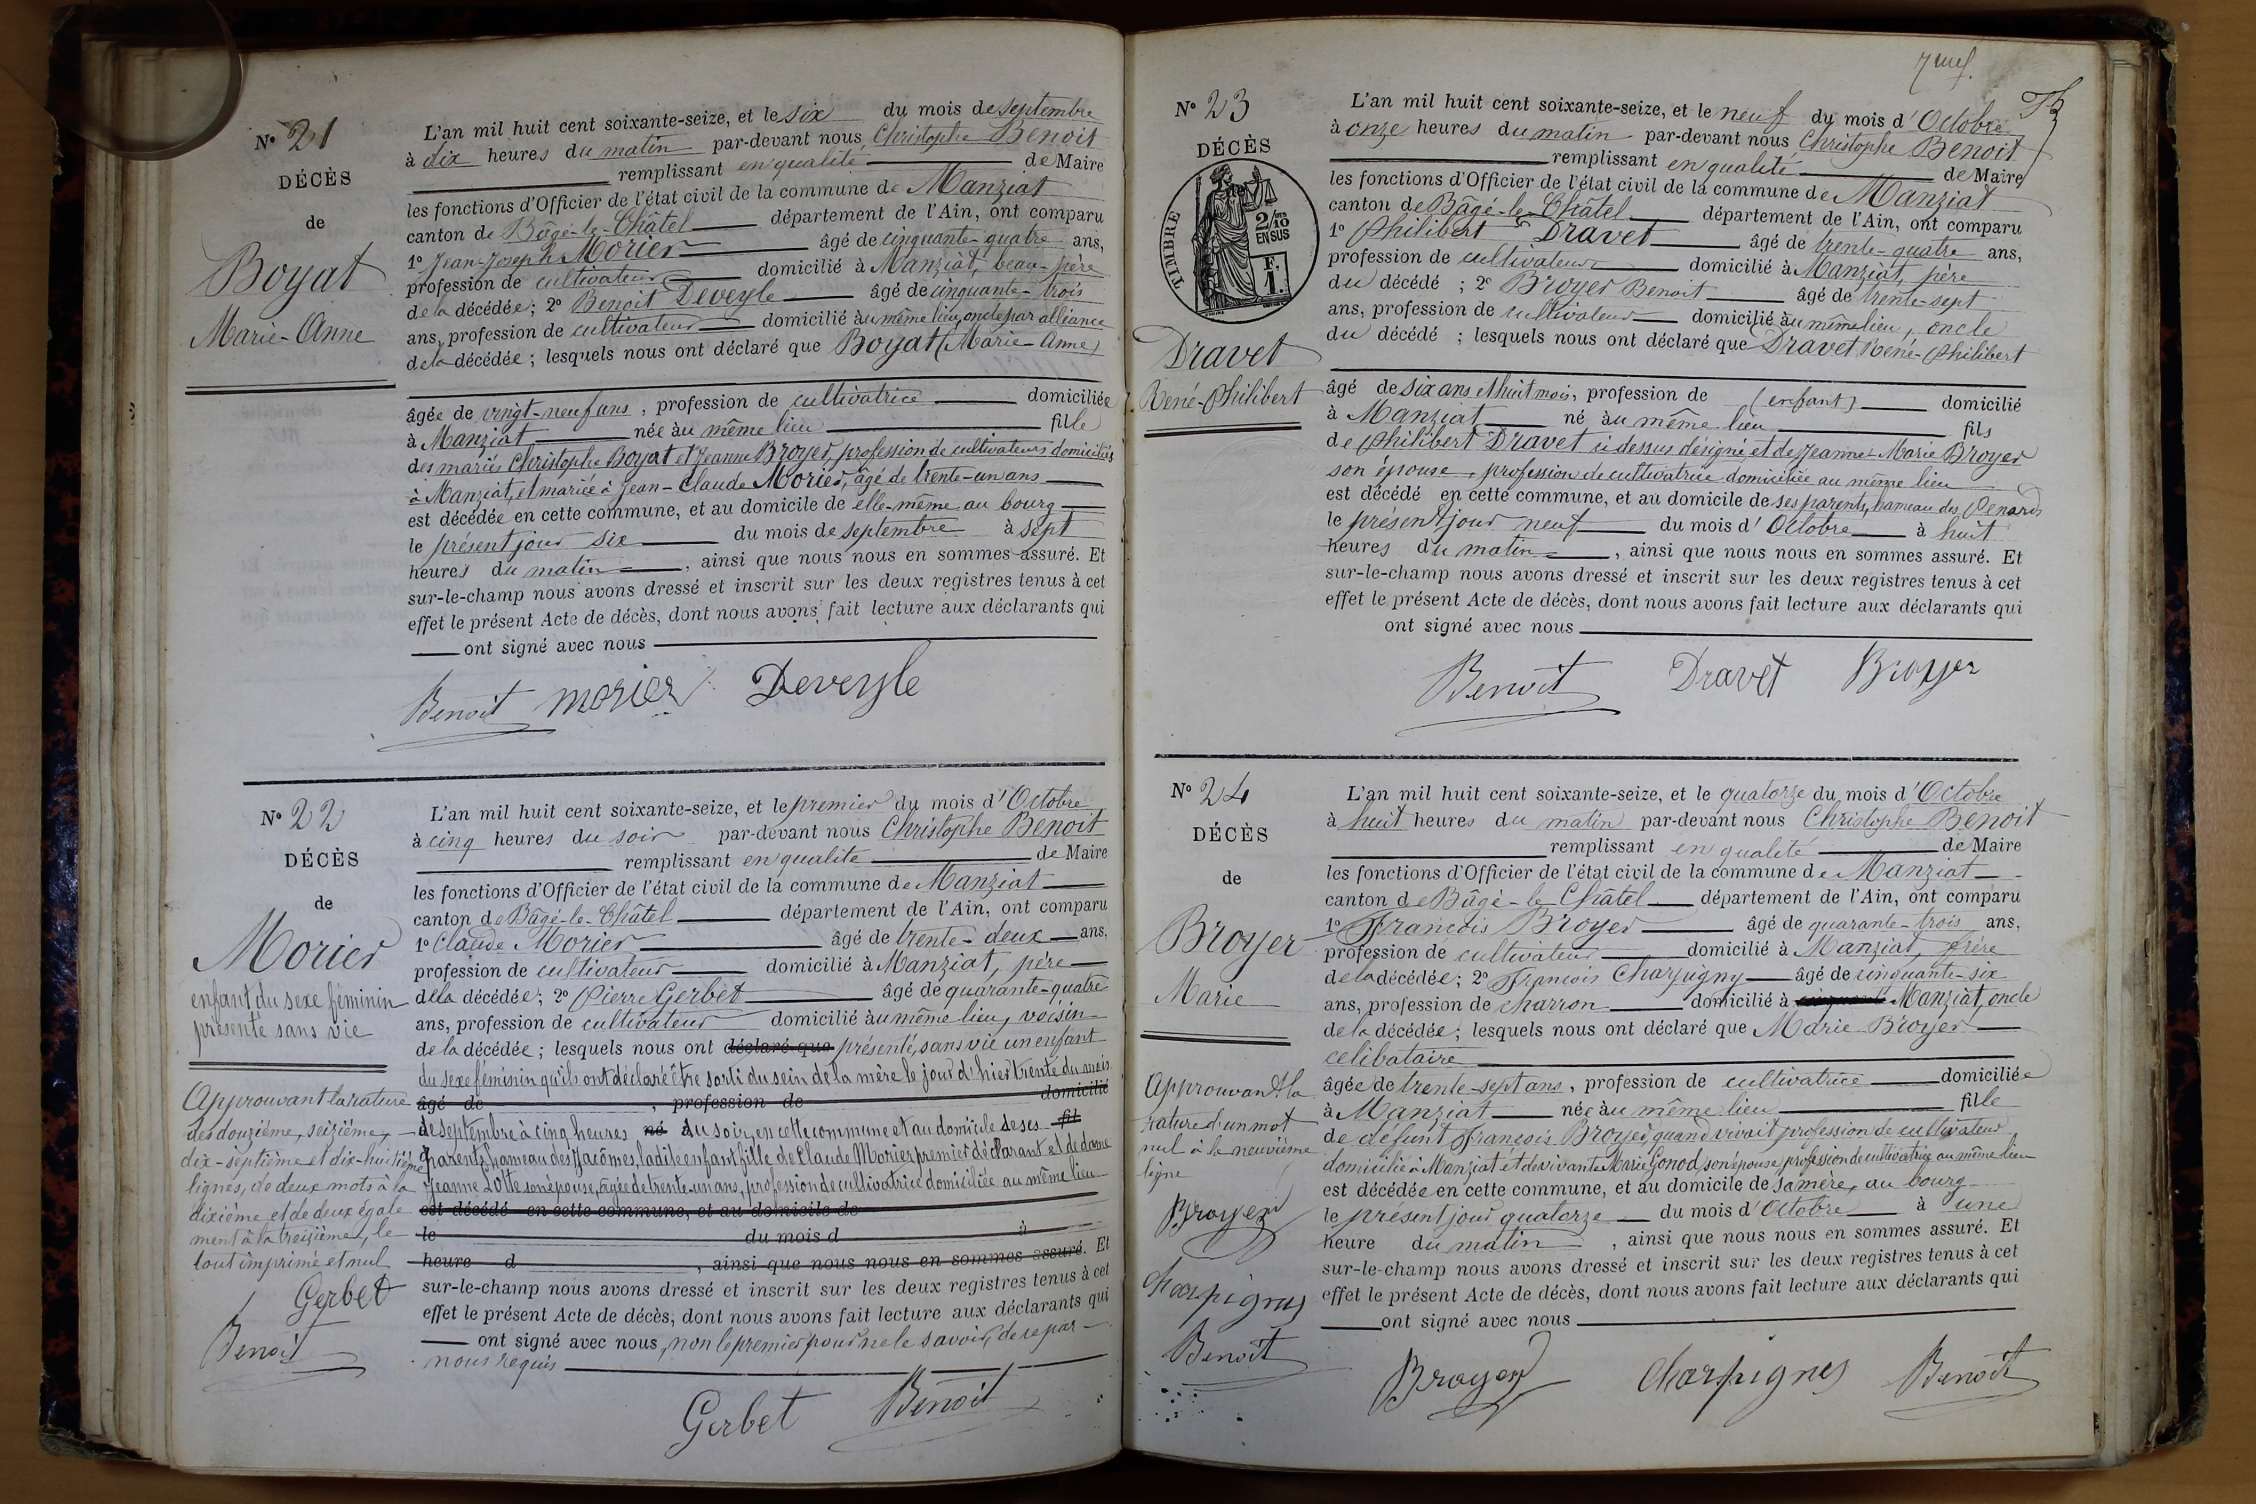 N° 21
DÉCÈS
de
Boyat
Marie-Anne
L'an mil huit cent soixante-seize, et le six du mois de septembre
à dix heures du matin par-devant nous Christophe Benoit
remplissant en qualité de Maire
les fonctions d'Officier de l'état civil de la commune de Manziat
canton de Bâgé-le-Châtel département de l'Ain, ont comparu
1° Jean-Joseph Morier âgé de cinquante-quatre ans,
profession de cultivateur domicilié à Manziat, beau-père
de la décédée; 2° Benoit Deveyle âgé de cinquante-trois
ans, profession de cultivateur domicilié au même lieu, oncle par alliance
de la décédée; lesquels nous ont déclaré que Boyat (Marie-Anne)
âgée de vingt-neuf ans, profession de cultivatrice domiciliée
à Manziat née au même lieu fille
des mariés Christophe Boyat et Jeanne Broyer, profession de cultivateurs domiciliés
à Manziat, et mariée à Jean-Claude Morier, âgé de trente-un ans
est décédée en cette commune, et au domicile de elle-même au bourg
le présent jour six du mois de septembre à sept
heures du matin, ainsi que nous nous en sommes assuré. Et
sur-le-champ nous avons dressé et inscrit sur les deux registres tenus à cet
effet le présent Acte de décès, dont nous avons fait lecture aux déclarants qui
ont signé avec nous
Benoit Morier Deveyle
N° 22
DÉCÈS
de
Morier
enfant du sexe féminin
présenté sans vie
Approuvant la rature
des douzième, seizième,
dix-septième et dix-huitième
lignes, de deux mots à la
dixième et de deux égale
ment à la treizième, le
tout imprimé et nul
Gerbet
Benoit
L'an mil huit cent soixante-seize, et le premier du mois d'Octobre
à cinq heures du soir par-devant nous Christophe Benoit
remplissant en qualité de Maire
les fonctions d'Officier de l'état civil de la commune de Manziat
canton de Bâgé-le-Châtel département de l'Ain, ont comparu
1° Claude Morier âgé de trente-deux ans,
profession de cultivateur domicilié à Manziat, père
de la décédée; 2° Pierre Gerbet âgé de quarante-quatre
ans, profession de cultivateur domicilié au même lieu, voisin
de la décédée; lesquels nous ont déclaré que présenté, sans vie un enfant
du sexe féminin qu'ils ont déclaré être sorti du sein de la mère le jour d'hier trente du mois
âgé de , profession de domicilié
de septembre à cinq heures né du soir, en cette commune et au domicile de ses fil
parents, hameau des Jacômes, ladite enfant fille de Claude Morier premier déclarant et de dame
Jeanne Lotte son épouse, âgée de trente-un ans, profession de cultivatrice domiciliée au même lieu
est décédé en cette commune, et au domicile de
le du mois d à
heure d , ainsi que nous nous en sommes assuré. Et
sur-le-champ nous avons dressé et inscrit sur les deux registres tenus à cet
effet le présent Acte de décès, dont nous avons fait lecture aux déclarants qui
ont signé avec nous, non le premier pour ne le savoir, de ce par
nous requis
Gerbet Benoit
N° 23
DÉCÈS
TIMBRE
2/10
EN SUS
F.
1.
Dravet
René-Philibert
L'an mil huit cent soixante-seize, et le neuf du mois d'Octobre
à onze heures du matin par-devant nous Christophe Benoit
remplissant en qualité de Maire
les fonctions d'Officier de l'état civil de la commune de Manziat
canton de Bâgé-le-Châtel département de l'Ain, ont comparu
1° Philibert Dravet âgé de trente-quatre ans,
profession de cultivateur domicilié à Manziat, père
du décédé; 2° Broyer Benoit âgé de trente-sept
ans, profession de cultivateur domicilié au même lieu, oncle
du décédé; lesquels nous ont déclaré que Dravet René-Philibert
âgé de six ans et huit mois, profession de (enfant) domicilié
à Manziat né au même lieu fils
de Philibert Dravet ci dessus désigné et de Jeanne-Marie Broyer
son épouse, profession de cultivatrice domiciliée au même lieu
est décédé en cette commune, et au domicile de ses parents, hameau des Penards
le présent jour neuf du mois d'Octobre à huit
heures du matin, ainsi que nous nous en sommes assuré. Et
sur-le-champ nous avons dressé et inscrit sur les deux registres tenus à cet
effet le présent Acte de décès, dont nous avons fait lecture aux déclarants qui
ont signé avec nous
Benoit Dravet Broyer
N° 24
DÉCÈS
de
Broyer
Marie
Approuvant la
rature d'un mot
nul à la neuvième
ligne
Broyer
Charpigny
Benoit
L'an mil huit cent soixante-seize, et le quatorze du mois d'Octobre
à huit heures du matin par-devant nous Christophe Benoit
remplissant en qualité de Maire
les fonctions d'Officier de l'état civil de la commune de Manziat
canton de Bâgé-le-Châtel département de l'Ain, ont comparu
1° François Broyer âgé de quarante-trois ans,
profession de cultivateur domicilié à Manziat, frère
de la décédée; 2° François Charpigny âgé de cinquante-six
ans, profession de charron domicilié à Manziat, oncle
de la décédée; lesquels nous ont déclaré que Marie Broyer
célibataire
âgée de trente-sept ans, profession de cultivatrice domiciliée
à Manziat née au même lieu fille
de défunt François Broyer, quand vivait profession de cultivateur
domicilié à Manziat et de vivante Marie Gonod, son épouse, profession de cultivatrice au même lieu
est décédée en cette commune, et au domicile de sa mère, au bourg
le présent jour quatorze du mois d'Octobre à une
heure du matin, ainsi que nous nous en sommes assuré. Et
sur-le-champ nous avons dressé et inscrit sur les deux registres tenus à cet
effet le présent Acte de décès, dont nous avons fait lecture aux déclarants qui
ont signé avec nous
Broyer Charpigny Benoit